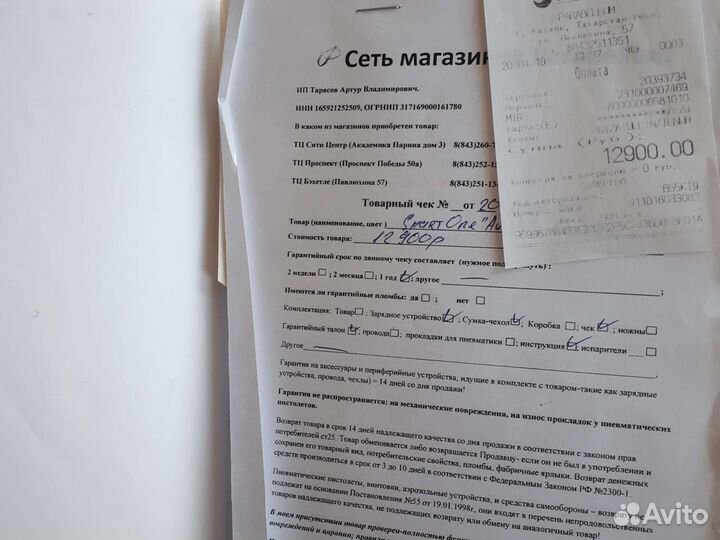 PARABELLUM
г. Казань, Татарстан Респ,
ул. Павлюхина, 57
88432511351
20.01.19 ЧЕК 0003
Оплата
Терминал: 20393734
Мерчант: 231000007469
A0000006581010
MIR
Карта:(E)
Клиент: GIZATULLIN/ILNUR
Сумма (Руб):
12900.00
Комиссия за операцию - 0 Руб.
ОДОБРЕНО
Код авторизации:
Номер
Сеть магазин
ИП Тарасов Артур Владимирович.
ИНН 165921252509, ОГРНИП 317169000161780
В каком из магазинов приобретен товар:
ТЦ Сити Центр (Академика Парина дом 3) 8(843)260-7
ТЦ Проспект (Проспект Победы 50а) 8(843)252-15
ТЦ Бэхетле (Павлюхина 57) 8(843)251-13-
Товарный чек № __от 20
Товар (наименование, цвет ) Smart One
Стоимость товара: 12900р
Гарантийный срок по данному чеку составляет (нужное под
2 недели ; 2 месяца ; 1 год ; другое
Имеются ли гарантийные пломбы: да ; нет
Комплектация: Товар ; Зарядное устройство ; Сумка-чехол ; Коробка ; чек ; ножны
Гарантийный талон , провода ; прокладки для пневматики ; инструкция ; испарители
Другое
Гарантия на аксессуары и периферийные устройства, идущие в комплекте с товаром-такие как зарядные
устройства, провода, чехлы) = 14 дней со дня продажи!
Гарантия не распространяется: на механические повреждения, на износ прокладок у пневматических
пистолетов.
Возврат товара в срок 14 дней надлежащего качества со дня продажи в соответствии с законом прав
потребителей ст25. Товар обменивается либо возвращается Продавцу- если он не был в употреблении и
сохранен его товарный вид, потребительские свойства, пломбы, фабричные ярлыки. Возврат денежных
средств производиться в срок от 3 до 10 дней в соответствии с Федеральным Законом РФ №2300-1.
Пневматические пистолеты, винтовки, аэрозольные устройства, и средства самообороны – возврату не
подлежат на основании Постановления №55 от 19.01.1998г, они входят в перечень непродовольственных
товаров надлежащего качества, не подлежащих возврату или обмену на аналогичный товар!
В моем присутствии товар проверен-полностью
повреждений и царапин;
Avito